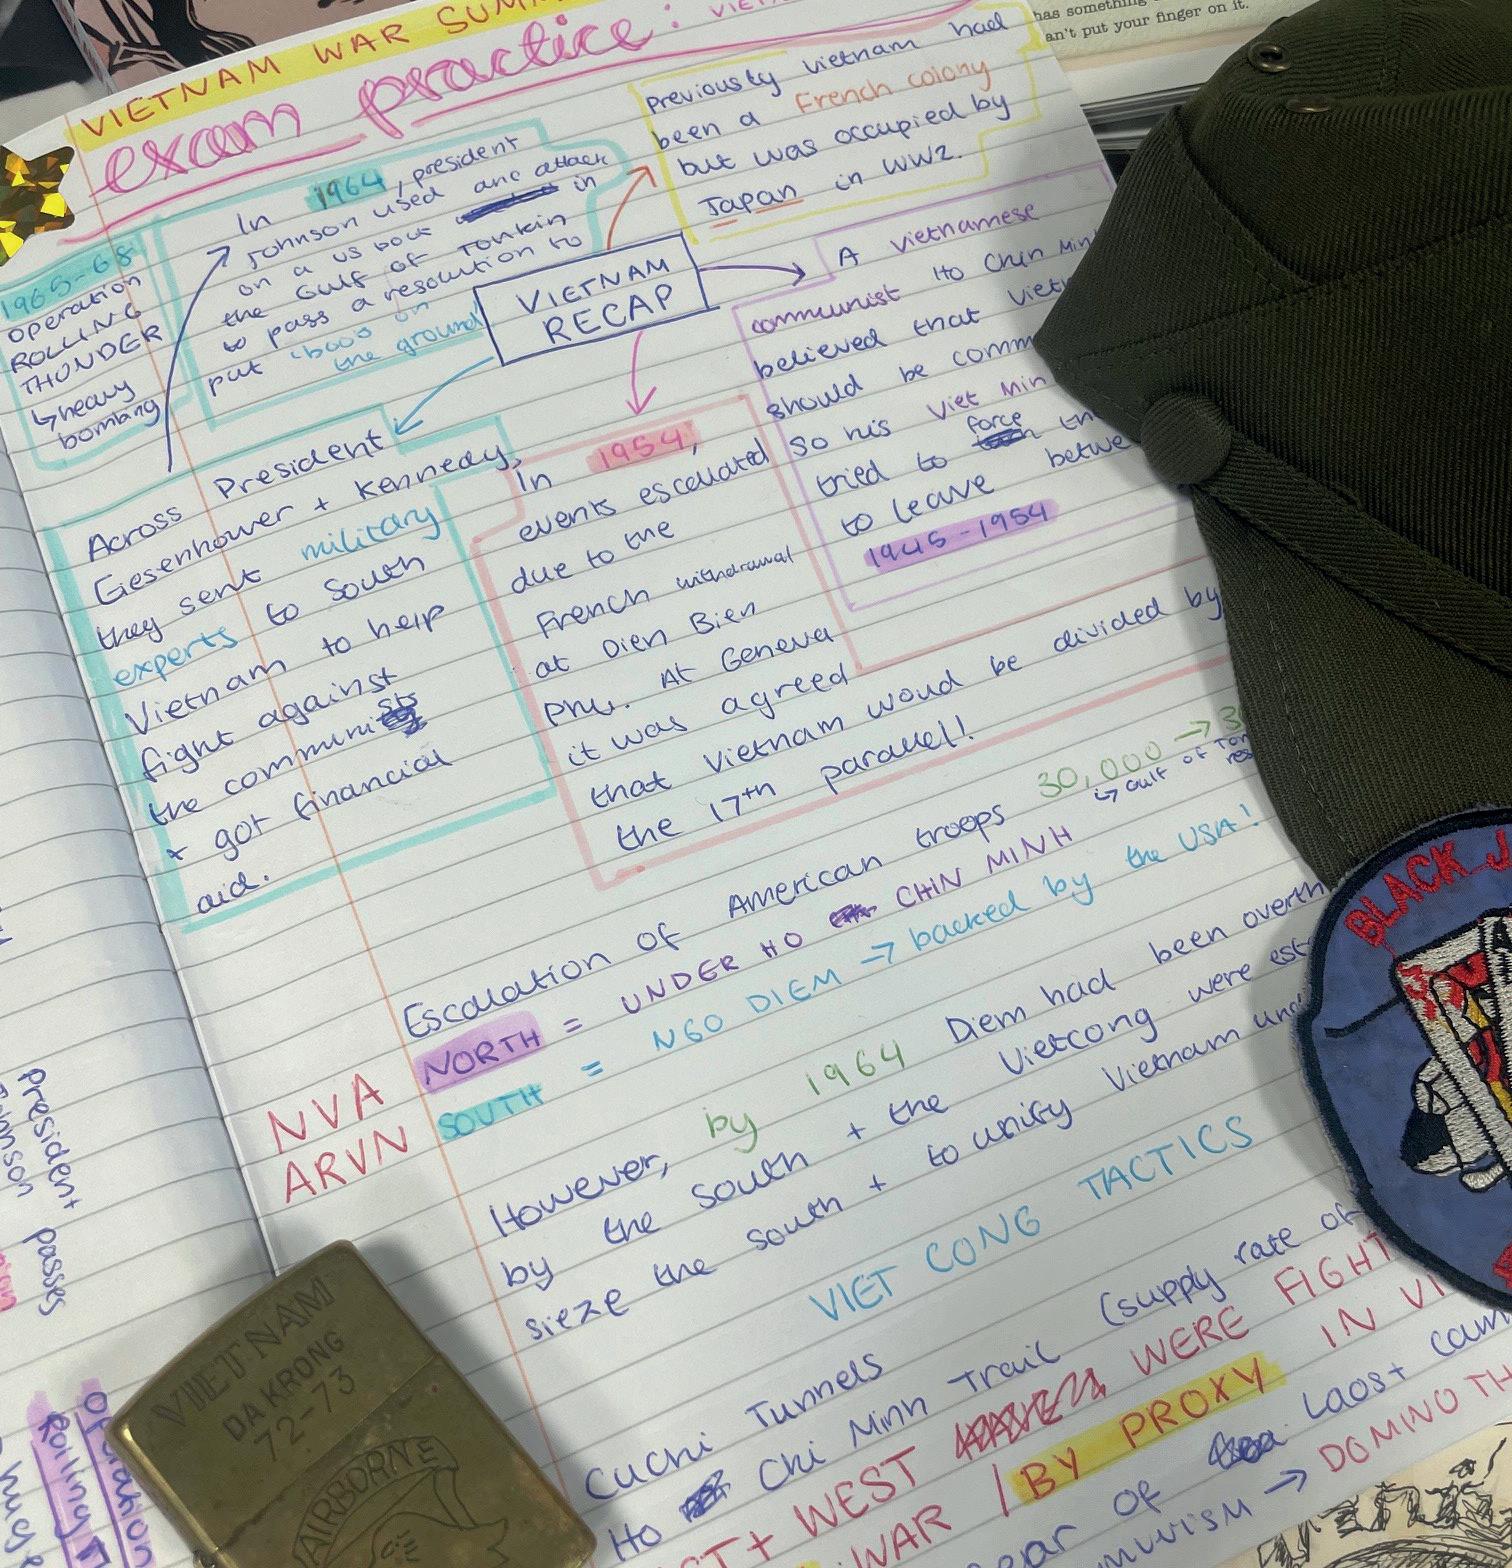 has something
an't put your finger on it.
VIETNAM WAR SUM
exam practice:
1965-68
operation
ROLLING
THUNDER
↳heavy
bombing
In 1964, president
Johnson used and attack
on a US boat in
the Gulf of Tonkin
to pass a resolution to
put 'boos on
the ground'
previously Vietnam had
been a French colony
but was occupied by
Japan in WW2.
VIETNAM
RECAP
A Vietnamese
communist Ho Chin Minh
believed that Viet
should be comm
so his Viet Min
tried to force th
to leave betwe
1945-1954
Across President
Eiesenhower + Kennedy,
they sent military
experts to South
Vietnam to help
fight against
the communists
+ got financial
aid.
In 1954,
events escalated
due to the
French withdrawal
at Dien Bien
Phu. At Geneva
it was agreed
that Vietnam woud be divided by
the 17th parallel!
Escalation of American troops 30,000 → 3
↳ Gulf of Ton
res
NVA NORTH = UNDER HO CHIN MINH
ARVN SOUTH = NGO DIEM → backed by the USA!
However, by 1964 Diem had been overth
by the south + the Vietcong were est
sieze the south + to unify Vietnam und
VIET CONG TACTICS
Cuchi Tunnels
Ho Chi Minh Trail (supply rate of
ST + WEST WERE FIGHT
WAR / BY PROXY IN VI
ear of Laos + cam
munism → DOMINO TH
president
Johnson passes
Operation
Rolling T
huge
VIETNAM
DA KRONG
72-73
AIRBORNE
BLACK J